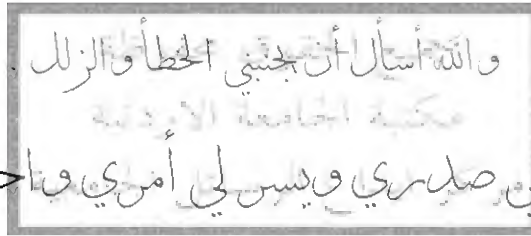 والله أسأل أن يجنبني الخطأ والزلل .
مكتبة الجامعة الاردنية
صدري ويسر لي أمري وا